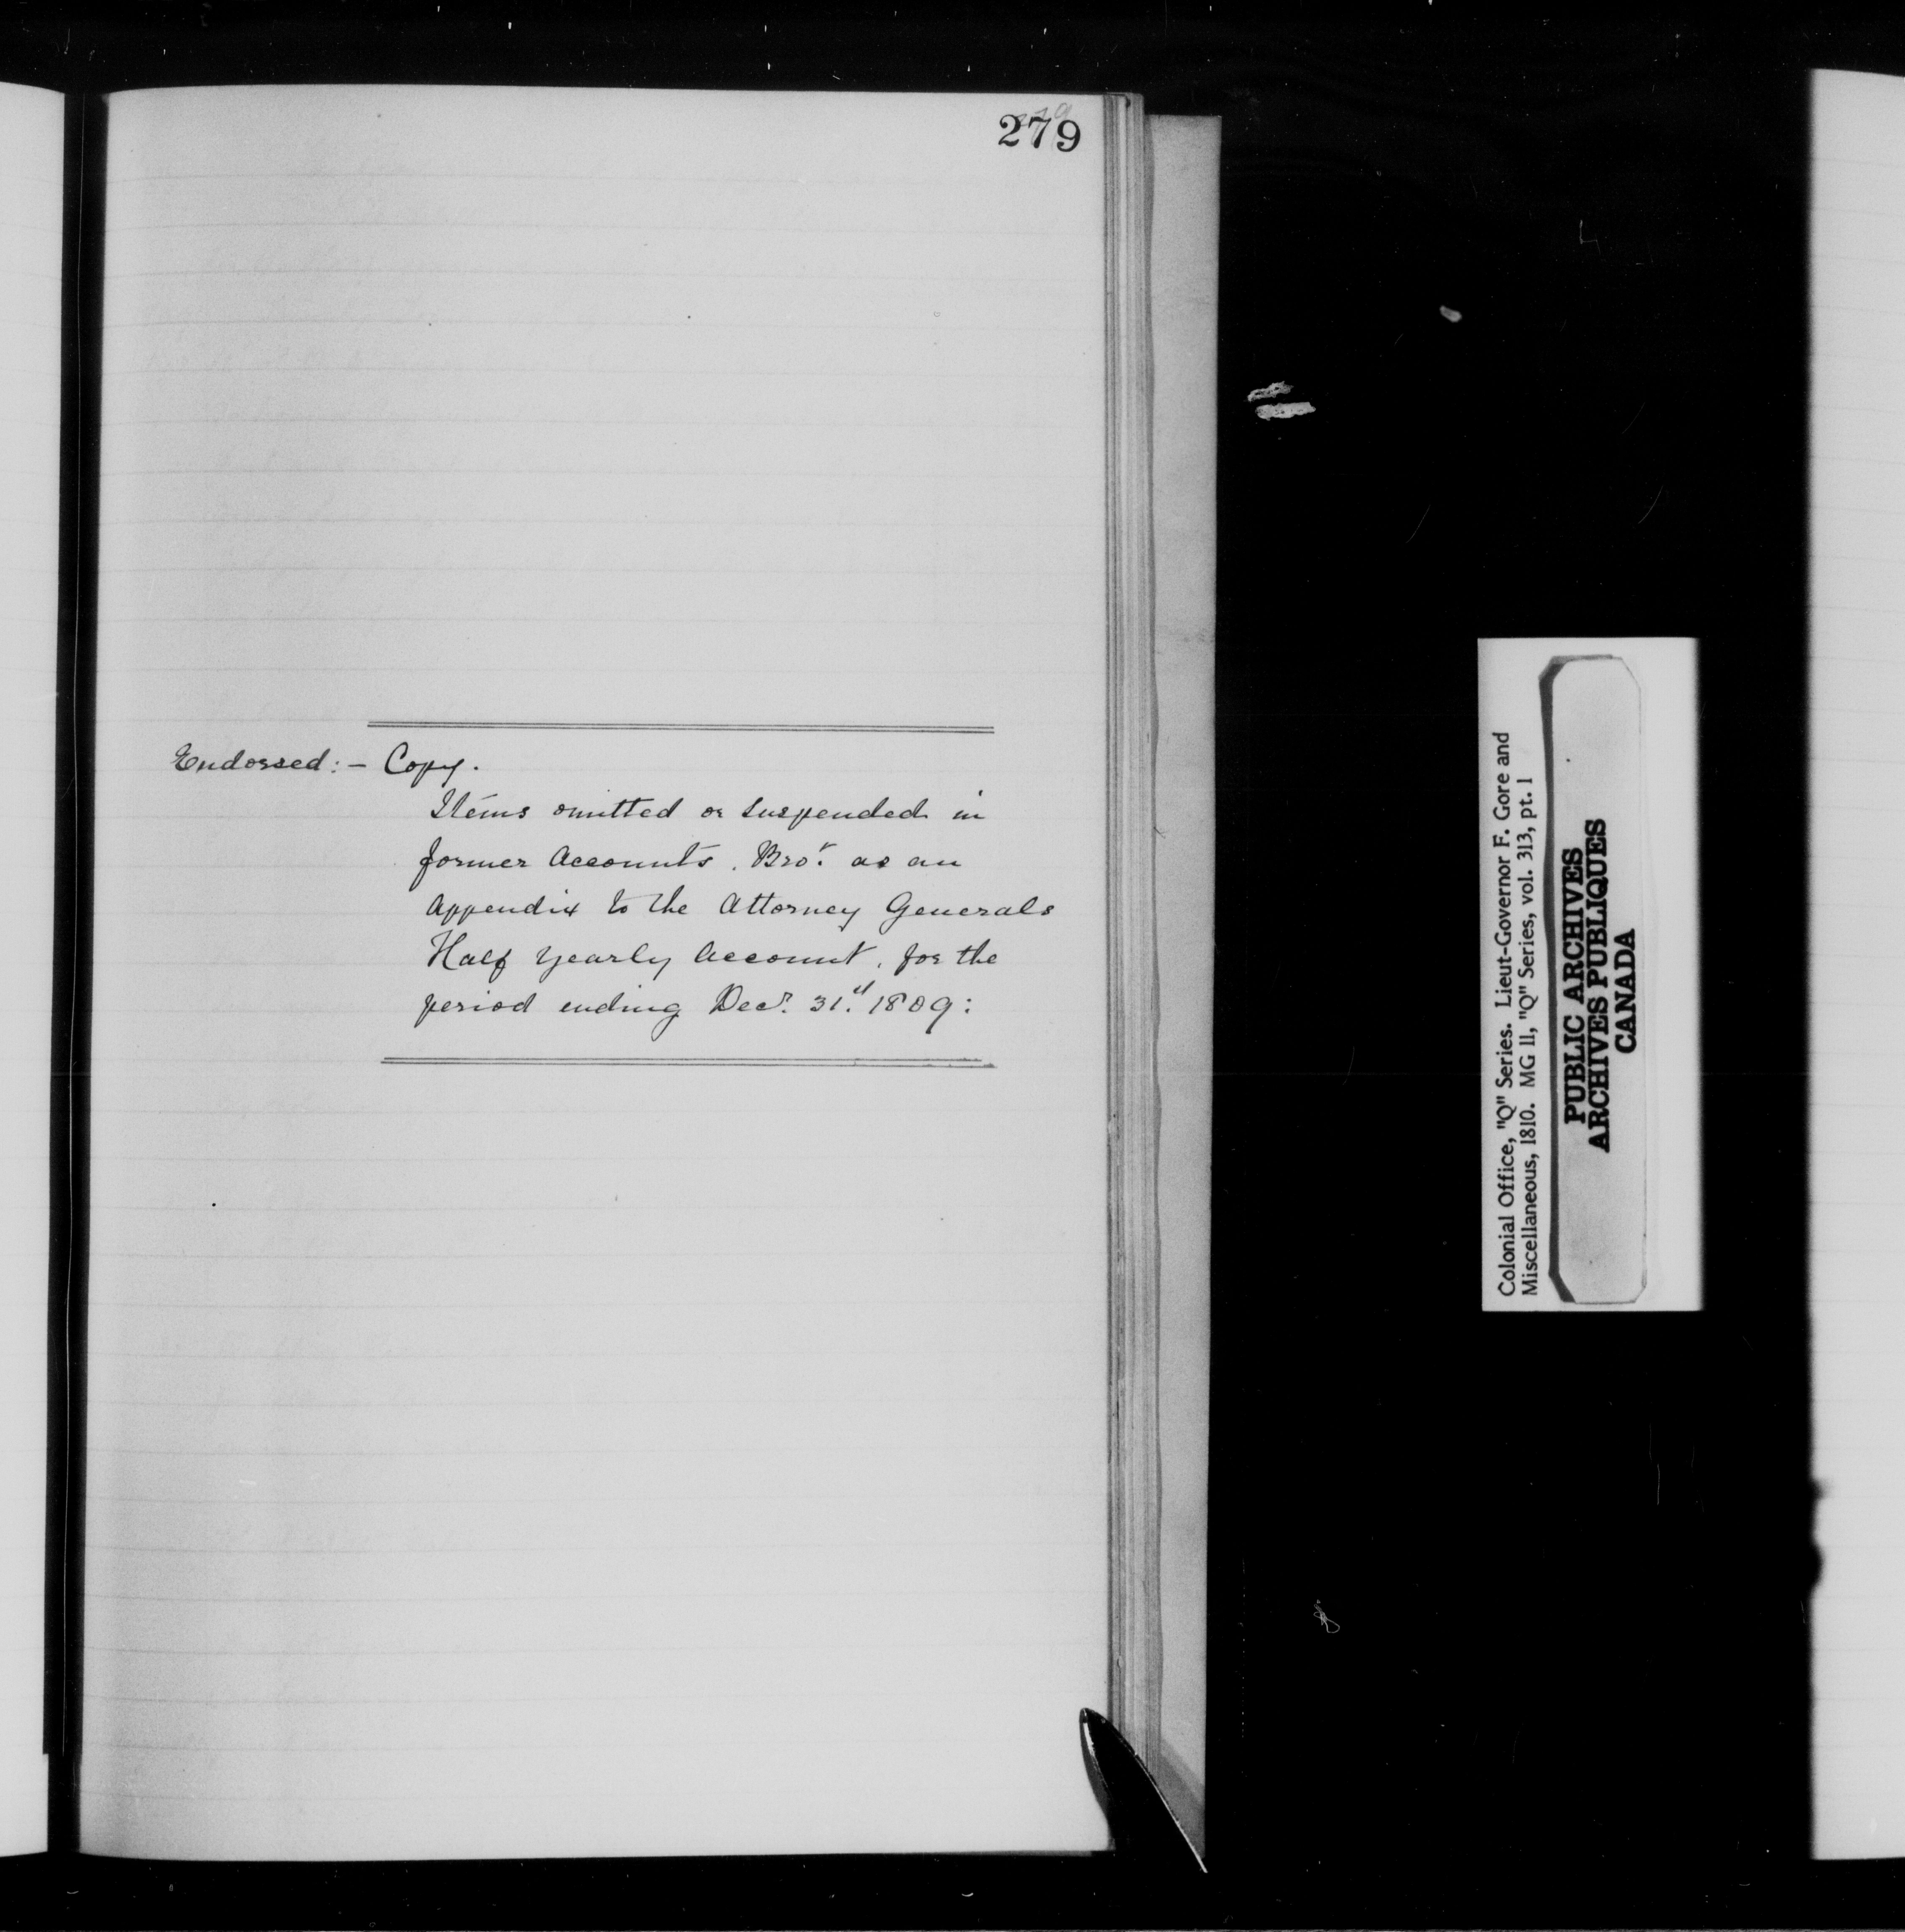 279
Endossed:- Copy.
Items omitted or suspended in
former Accounts. Bro.t as an
Appendix to the Attorney Generals
Half Yearly Account, for the
period ending Decr. 31.st 1809:
Colonial Office, "Q" Series. Lieut-Governor F. Gore and
Miscellaneous, 1810. MG 11, "Q" Series, vol. 313, pt. 1
PUBLIC ARCHIVES
ARCHIVES PUBLIQUES
CANADA